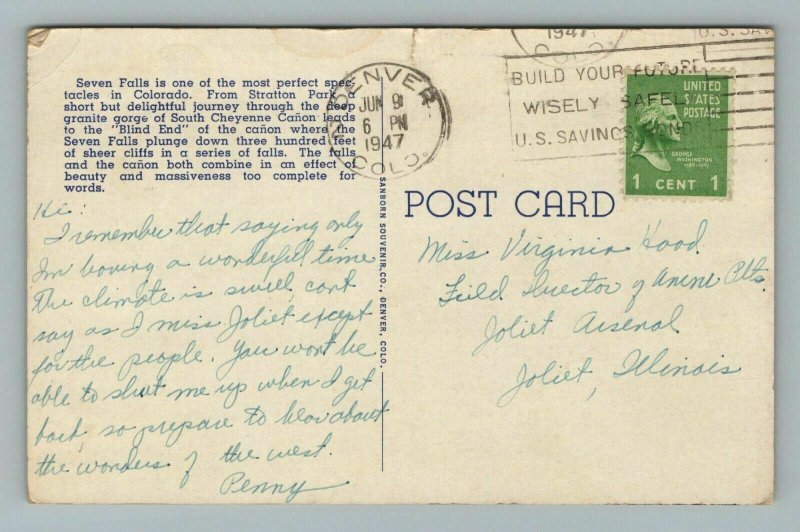 Seven Falls is one of the most perfect spec-
tacles in Colorado. From Stratton Park a
short but delightful journey through the deep
granite gorge of South Cheyenne Cañon leads
to the "Blind End" of the cañon where the
Seven Falls plunge down three hundred feet
of sheer cliffs in a series of falls. The falls
and the cañon both combine in an effect of
beauty and massiveness too complete for
words.
Hi:
I remember that saying only
I'm having a wonderful time
The climate is swell cant
say as I miss Joliet except
for the people. You won't be
able to shut me up when I get
back, so prepare to hear about
the wonders of the west.
Penny
SANBORN SOUVENIR CO., DENVER, COLO.
DENVER
JUN 9
6 PM
1947
COLO.
1947
COLO.
U.S. SAV
BUILD YOUR FUTURE
WISELY SAFELY
U.S. SAVINGS BOND
UNITED
STATES
POSTAGE
GEORGE
WASHINGTON
1 CENT 1
POST CARD
Miss Virginia Hood
Field Director of
Joliet Arsenal
Joliet, Illinois